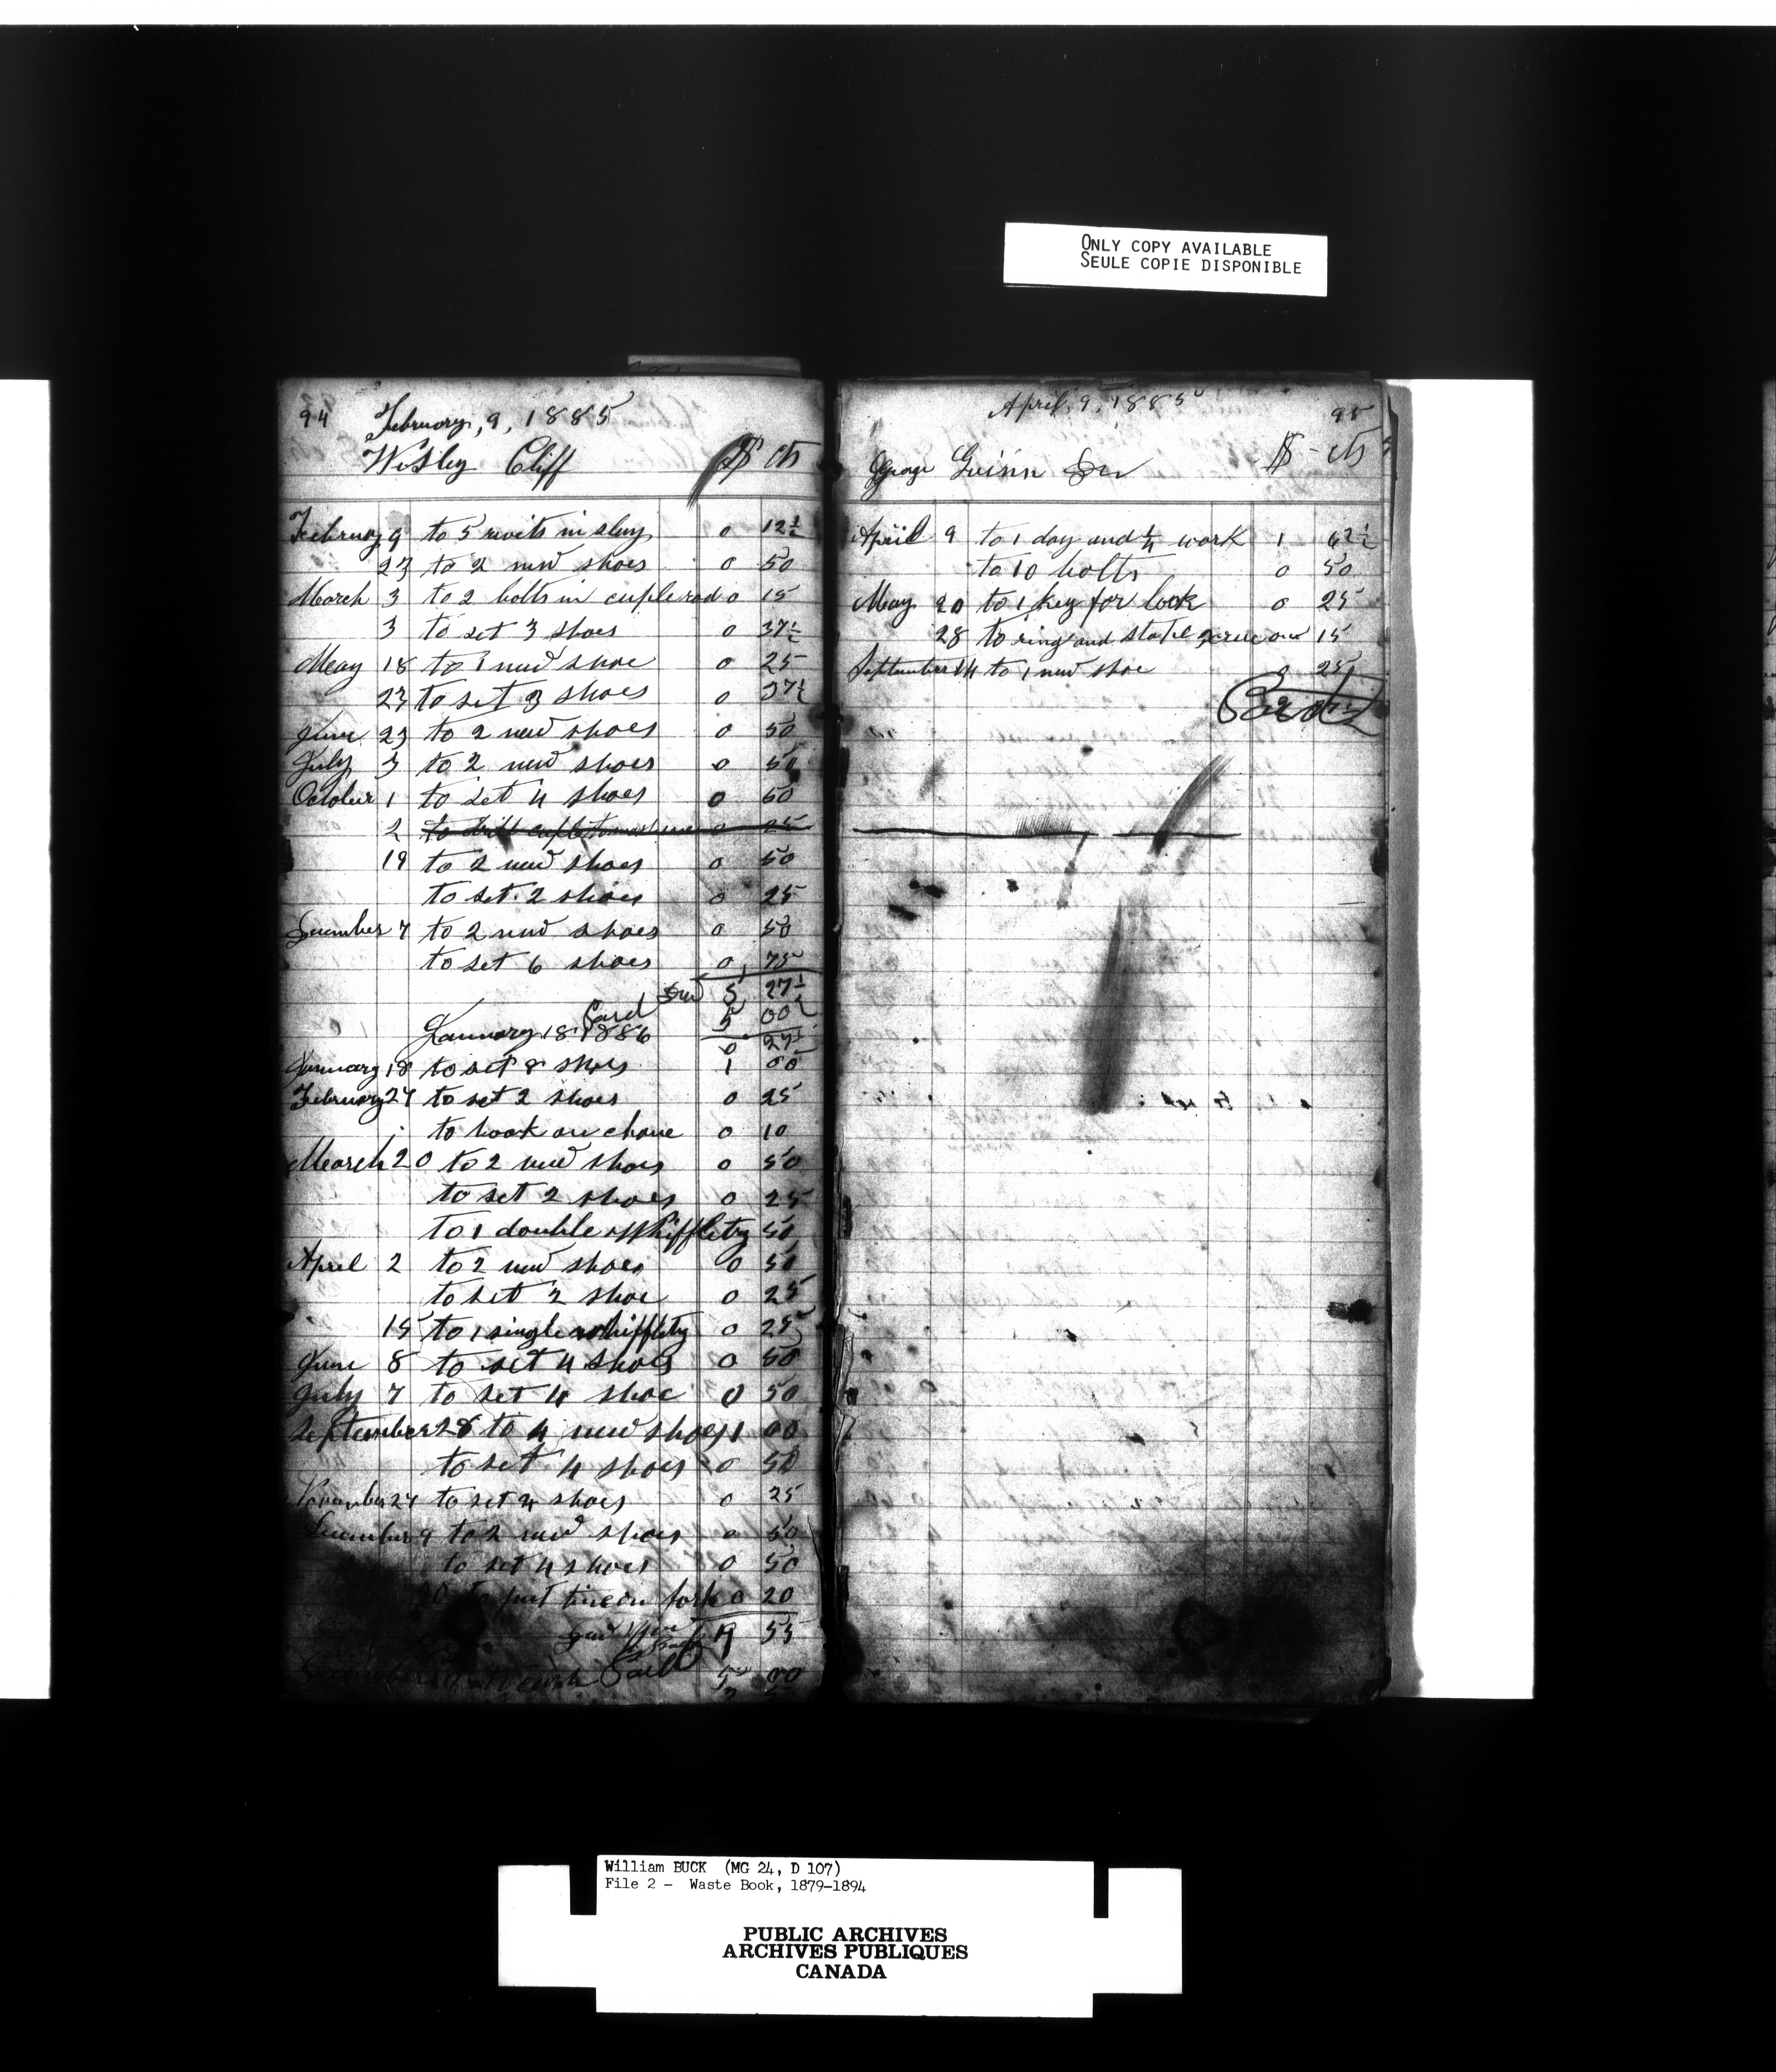 ONLY COPY AVAILABLE
SEULE COPIE DISPONIBLE
94 February, 9, 1885
Wesley Cliff $ cts
February 9 to 5 rivets in sley 0 12½
23 to 2 new shoes 0 50
March 3 to 2 bolts in cuplerod 0 15
3 to set 3 shoes 0 37½
May 18 to 1 new shoe 0 25
23 to set 3 shoes 0 37½
June 23 to 2 new shoes 0 50
July 3 to 2 new shoes 0 50
October 1 to set 4 shoes 0 50
2 to 0 25
19 to 2 new shoes 0 50
to set 2 shoes 0 25
December 7 to 2 new shoes 0 50
to set 6 shoes 0 75
Due 5 27½
Paid 5 00
January 18 1886 0 27½
January 18 to set 8 shoes 1 00
February 27 to set 2 shoes 0 25
to hook on chane 0 10
March 20 to 2 new shoes 0 50
to set 2 shoes 0 25
to 1 double Whiffletry 50
April 2 to 2 new shoes 0 50
to set 2 shoe 0 25
15 to 1 single whiffletry 0 25
June 8 to set 4 shoes 0 50
July 7 to set 4 shoe 0 50
September 28 to 4 new shoes 1 00
to set 4 shoes 0 50
November 27 to set shoes 0 25
December 9 to 2 new shoes 0 50
to set 4 shoes 0 50
20 to put tine in fork 0 20
55
Paid 5 00
April, 9, 1885 95
George Guinn Dr $ - cts
April 9 to 1 day and ¼ work 1 62½
to 10 bolts 0 50
May 20 to 1 key for lock 0 25
28 to ring and staple 15
September 14 to 1 new shoe 0 25
Paid
William BUCK (MG 24, D 107)
File 2 - Waste Book, 1879-1894
PUBLIC ARCHIVES
ARCHIVES PUBLIQUES
CANADA